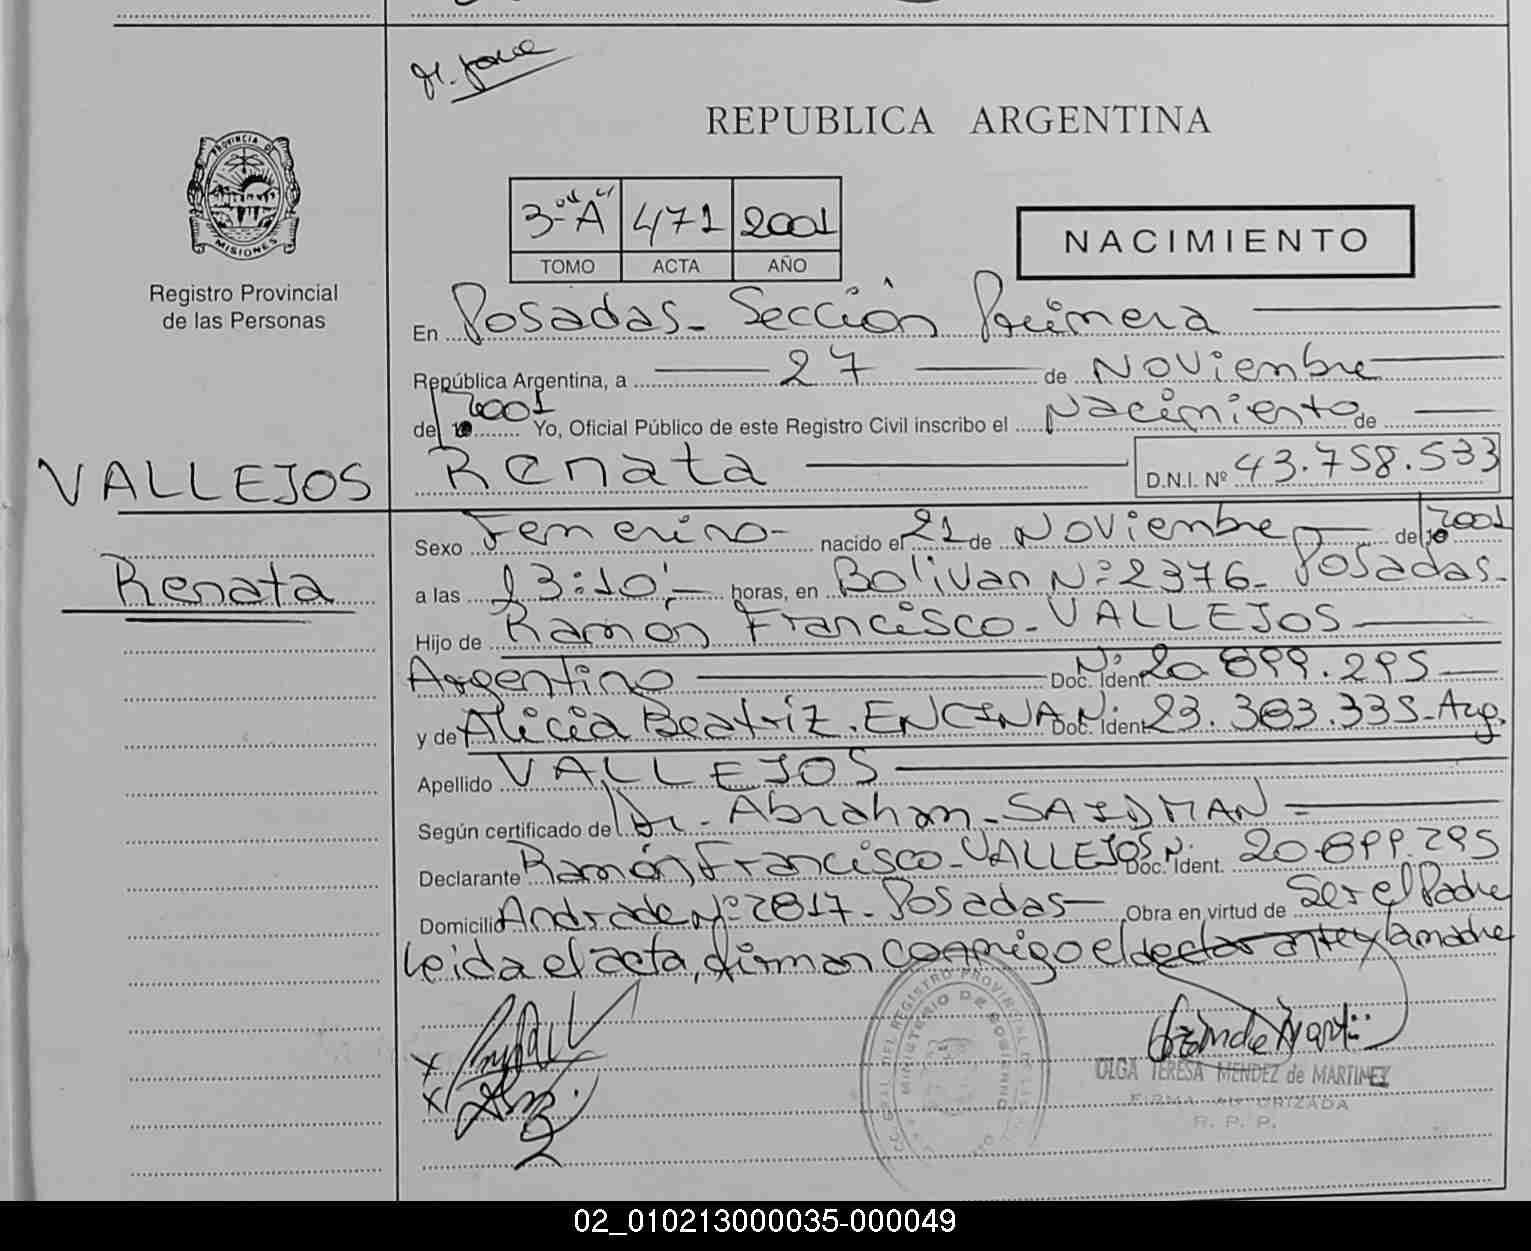 REPUBLICA ARGENTINA
PROVINCIA DE
MISIONES
Registro Provincial
de las Personas
3º "A" 471 2001
TOMO ACTA AÑO
NACIMIENTO
En Posadas - Sección Primera
República Argentina, a 27 de Noviembre
de 2001 Yo, Oficial Público de este Registro Civil inscribo el Nacimiento de
VALLEJOS
Renata
Renata D.N.I. Nº 43.758.533
Sexo Femenino - nacido el 21 de Noviembre de 2001
a las 13:10 horas, en Bolivar Nº 2376 - Posadas -
Hijo de Ramón Francisco - VALLEJOS
Argentino Doc. Ident. Nº 20.899.295
y de Alicia Beatriz. ENCINA Doc. Ident. Nº 23.383.335 - Arg.
Apellido VALLEJOS
Según certificado de Dr. Abraham - SAIDMAN
Declarante Ramón Francisco - VALLEJOS Doc. Ident. Nº 20.899.295
Domicilio Andrade Nº 2817 - Posadas - Obra en virtud de Ser el Padre
Leida el acta, firman conmigo el declarante y la madre
OLGA TERESA MENDEZ de MARTINEZ
FIRMA AUTORIZADA
R. P. P.
02_010213000035-000049